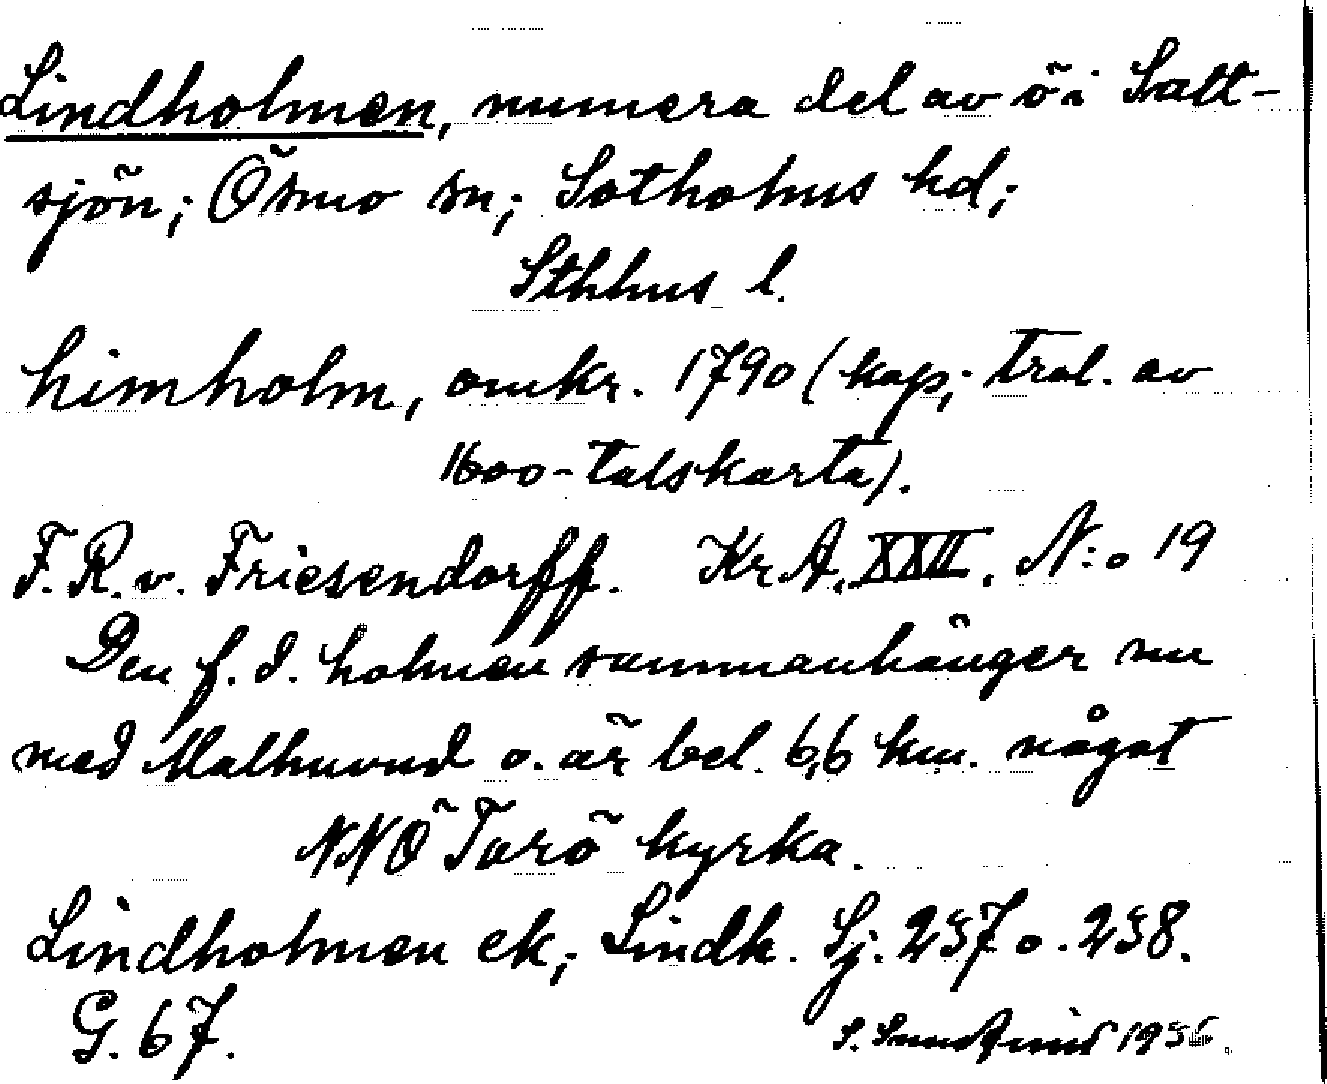 Lindholmen, numera del av ö i Salt-
sjön; Ösmo sn; Sotholms hd;
Sthlms l.
himholm, omkr. 1790 (kop; trol. av
1600-talskarta).
F. R. v. Friesendorff. Kr A. XXII. N:o 19
Den f. d. holmen sammanhänger nu
med Malhuvud o. är bel. 6,6 km. något
NNÖ Torö kyrka.
Lindholmen ek; Lindh. Sj. 237 o. 238.
G. 67.